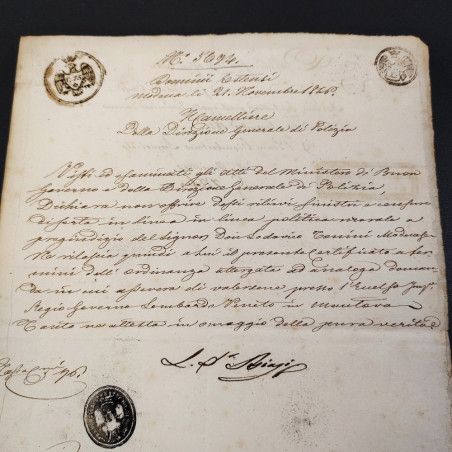 N.° 5694.
Dominii Estensi
Modena li 21. Novembre 1856
Il Cancelliere
Della Direzione Generale di Polizia
Visti ed esaminati gli Atti del Ministero di Buon
Governo e della Direzione Generale di Polizia,
Dichiara non offrire dessi rilievi sinistri a censura
di sorta in linea in linea politica morale a
pregiudizio del Signor Don Lodovico Tonini
Ne rilascia quindi a Lui il presente Certificato a ter-
mini dell' ordinanza attergata ad analoga doman-
da in cui assevera di valersene presso l'Eccelso Imp.
Regio Governo Lombardo Veneto in Mantova
Tanto ne attesta in omaggio della pura verità